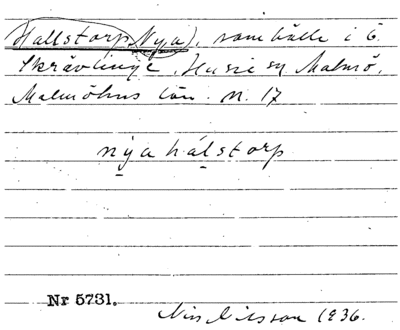 Hallstorp, Nya), samhälle i ö.
Skrävlinge, Husie sn, Malmö,
Malmöhus län. M. 17
nya hálstorp
Nr 5731.
Nils Nilsson 1936.